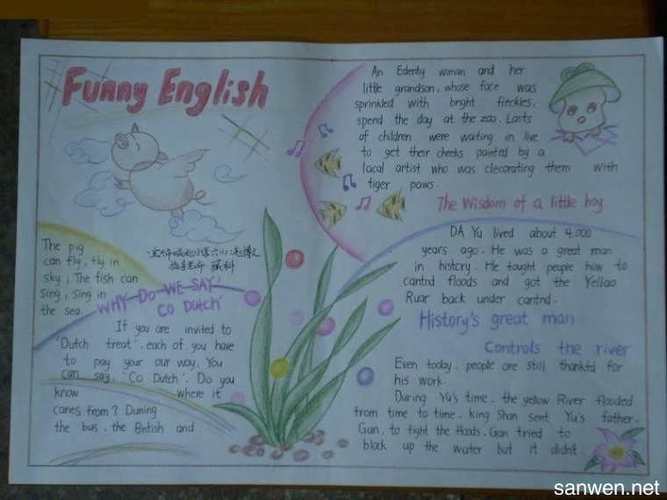 Funny English
The pig
can fly, fly in
sky; The fish can
Sing, Sing in
the sea.
WHY DO WE SAY
CO DUTCH
If you are invited to
"Dutch treat", each of you have
to pay your our way. You
can say, "Co Dutch". Do you
know where it
cames from? Duning
the bus, the British and
An Ederlly woman and her
little grandson, whose face was
sprinkled with bright fleckles,
spend the day at the zoo. Lasts
of children were waiting in live
to get their cheeks painted by a
lacal artist who was clecorating them with
tiger paws.
The Wisdom of a little boy
DA Yu lived about 4,000
years ago. He was a great man
in history. He taught people how to
cantrd floods and got the Yellao
Ruar back under cantrd.
History's great man
Controls the river
Even today, people are still thankfd for
his work.
During Yu's time, the yellow River flooded
from time to time. king Shan sent Yu's father,
Gun, to fight the floods. Gun tried to
block up the water but it didnt
sanwen.net